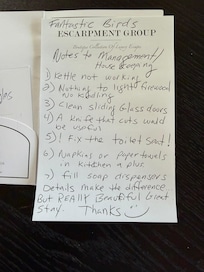 Fantastic Birds
ESCARPMENT GROUP
Notes to Management/
House Keeping
1) Kettle not working
2) Nothing to light firewood
No kindling
3) Clean sliding Glass doors
4) A knife that cuts would
be useful
5)! Fix the toilet seat!
6) Napkins or paper towels
in kitchen a plus
7) Fill soap dispensers
Details make the difference
But REALLY Beautiful Great
Stay. Thanks